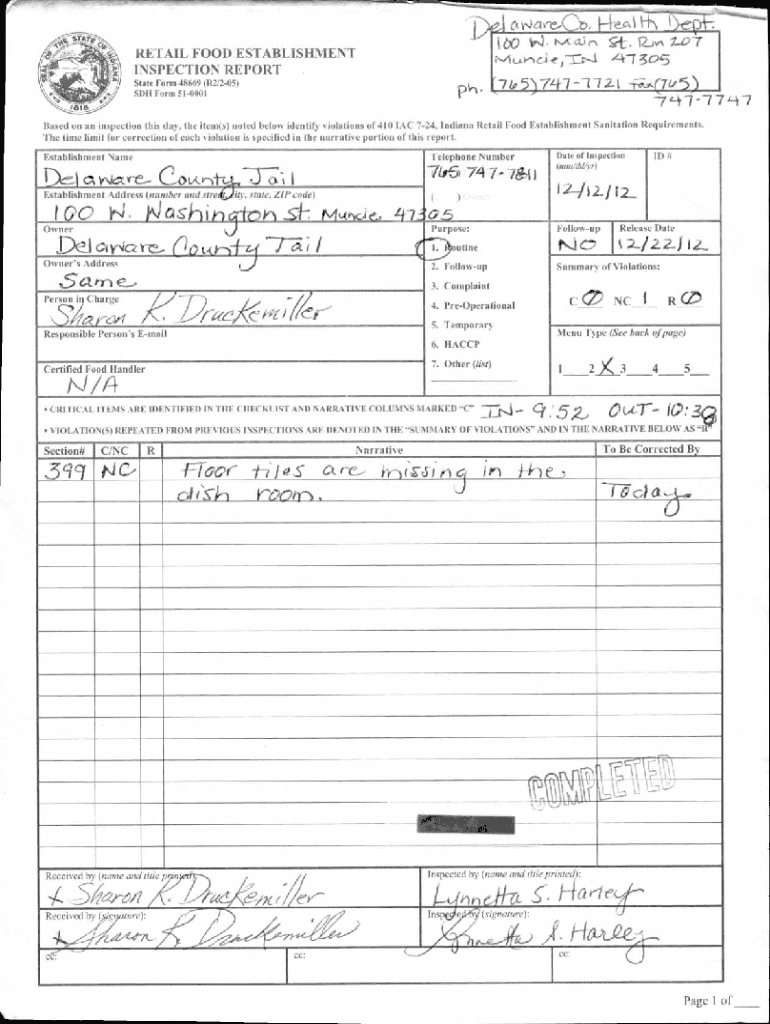 Delaware Co. Health Dept.
100 W. Main St. Rm 207
Muncie, IN 47305
ph. (765)747-7721 Fax(765)
747-7747
SEAL OF THE STATE OF INDIANA
1816
RETAIL FOOD ESTABLISHMENT
INSPECTION REPORT
State Form 48669 (R2/2-05)
SDH Form 51-0001
Based on an inspection this day, the item(s) noted below identify violations of 410 IAC 7-24, Indiana Retail Food Establishment Sanitation Requirements.
The time limit for correction of each violation is specified in the narrative portion of this report.
Establishment Name
Delaware County Jail
Telephone Number
765 747-7811
Date of Inspection
(mm/dd/yr)
12/12/12
ID #
Establishment Address (number and street, city, state, ZIP code)
( ) Owner
100 W. Washington St. Muncie 47305
Owner
Delaware County Jail
Purpose:
1. Routine
2. Follow-up
3. Complaint
4. Pre-Operational
5. Temporary
6. HACCP
7. Other (list)
Follow-up
NO
Release Date
12/22/12
Owner's Address
Same
Summary of Violations:
C 0 NC 1 R 0
Person in Charge
Sharon K. Druckemiller
Responsible Person's E-mail
Menu Type (See back of page)
1 2 X 3 4 5
Certified Food Handler
N/A
• CRITICAL ITEMS ARE IDENTIFIED IN THE CHECKLIST AND NARRATIVE COLUMNS MARKED "C" IN- 9:52 OUT- 10:38
• VIOLATION(S) REPEATED FROM PREVIOUS INSPECTIONS ARE DENOTED IN THE "SUMMARY OF VIOLATIONS" AND IN THE NARRATIVE BELOW AS "R"
Section# C/NC R Narrative To Be Corrected By
399 NC Floor tiles are missing in the
dish room. Today
COMPLETED
Received by (name and title printed):
Sharon K. Druckemiller
Inspected by (name and title printed):
Lynnetta S. Harley
Received by (signature):
Sharon K. Druckemiller
Inspected by (signature):
Lynnetta S. Harley
cc: cc: cc:
Page 1 of